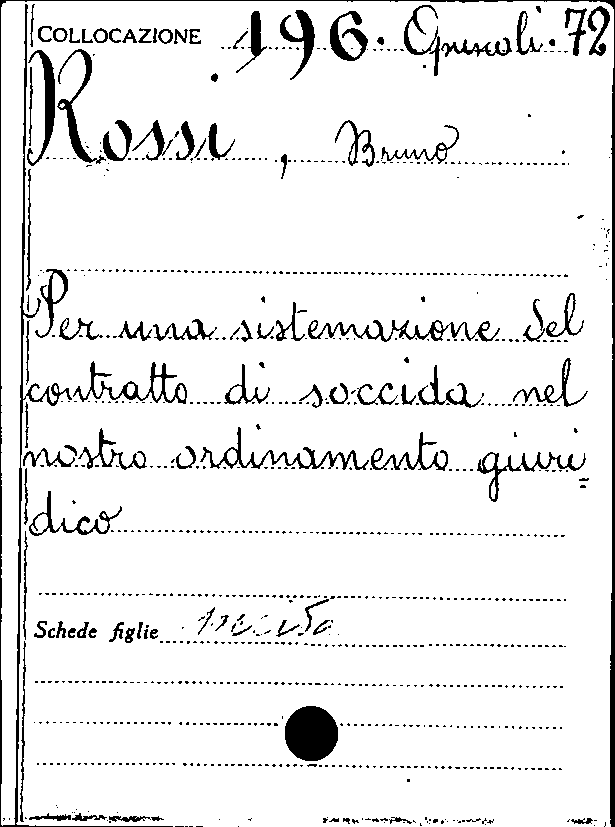 COLLOCAZIONE 196. Opuscoli. 72
Rossi, Bruno
Per una sistemazione del
contratto di soccida nel
nostro ordinamento giuri=
dico
Schede figlie